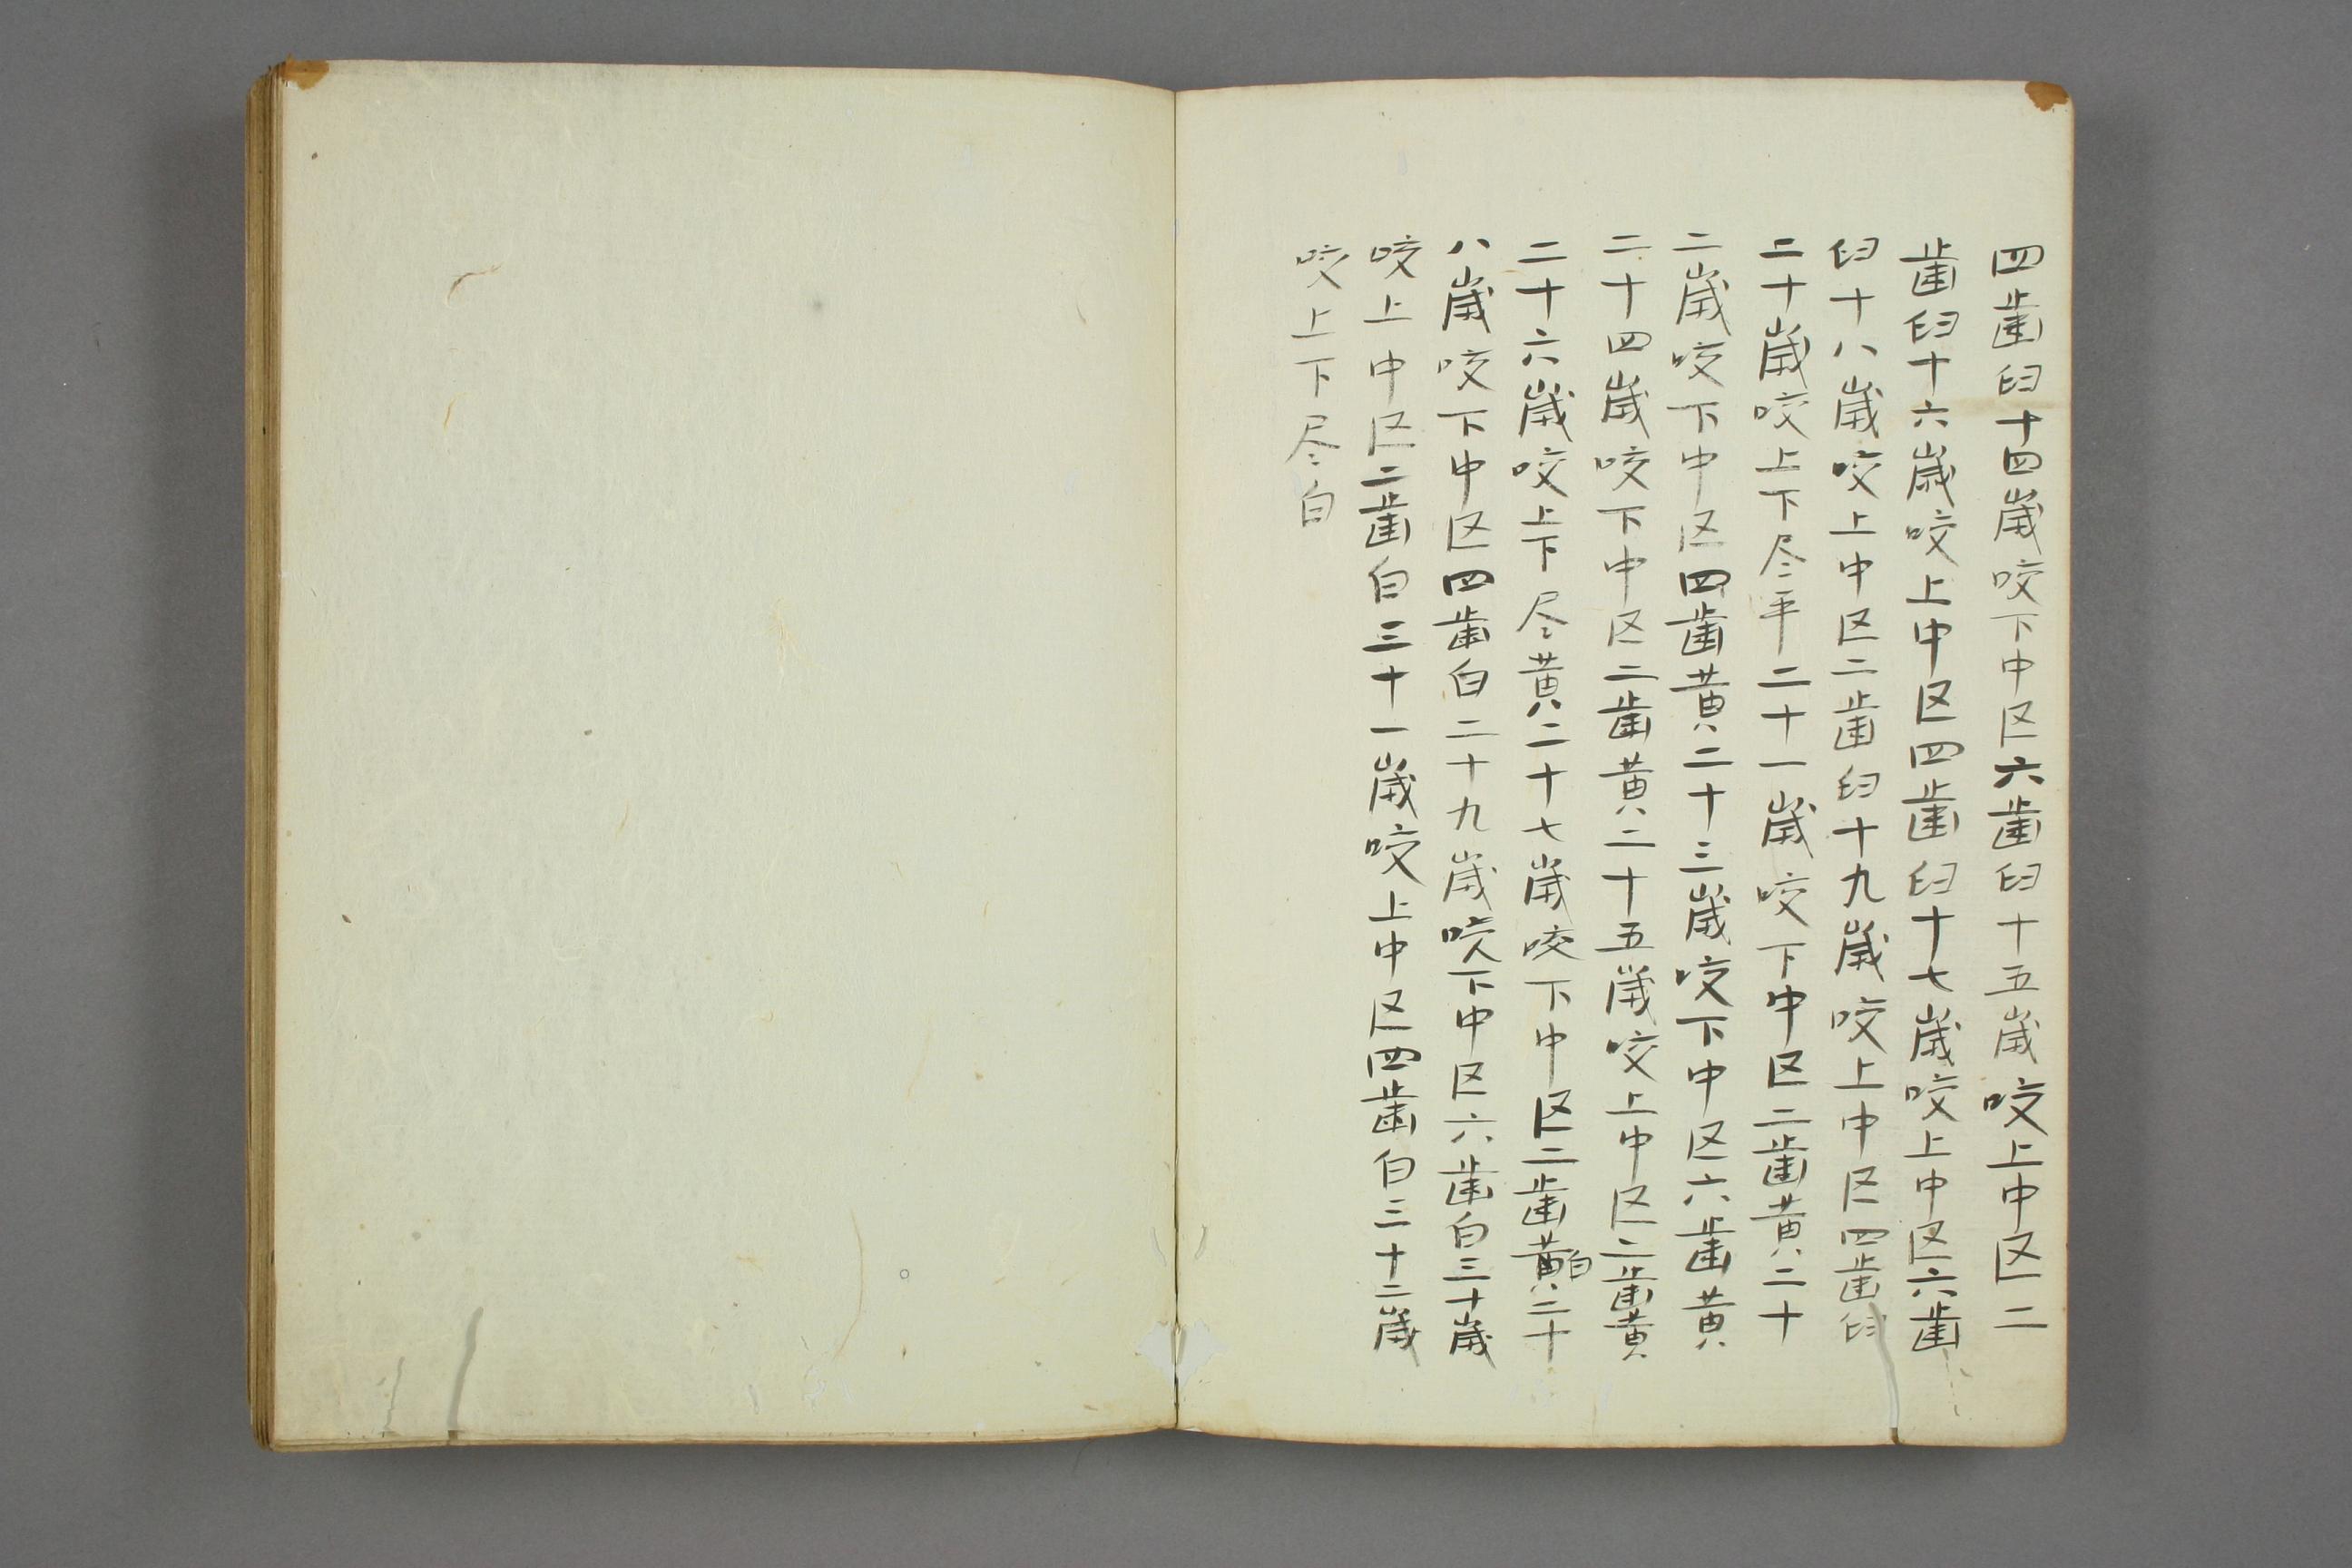 四歯臼十四歳咬下中区六歯臼十五歳咬上中区二
歯臼十六歳咬上中区四歯臼十七歳咬上中区六歯
臼十八歳咬上中区二歯臼十九歳咬上中区四歯臼
二十歳咬上下尽平二十一歳咬下中区二歯黄二十
二歳咬下中区四歯黄二十三歳咬下中区六歯黄
二十四歳咬下中区二歯黄二十五歳咬上中区二歯黄
二十六歳咬上下尽黄二十七歳咬下中区二歯黄白二十
八歳咬下中区四歯白二十九歳咬下中区六歯白三十歳
咬上中区二歯白三十一歳咬上中区四歯白三十二歳
咬上下尽白